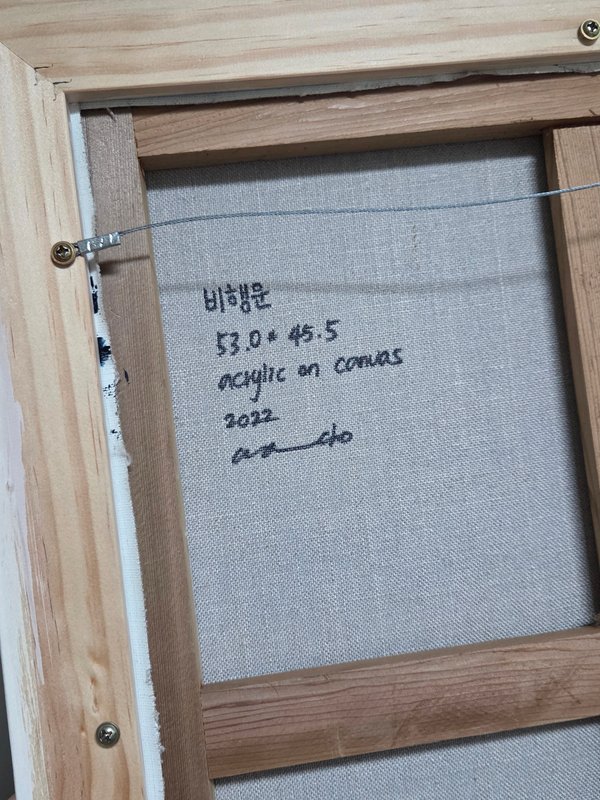 비행운
53.0 * 45.5
acrylic on canvas
2022